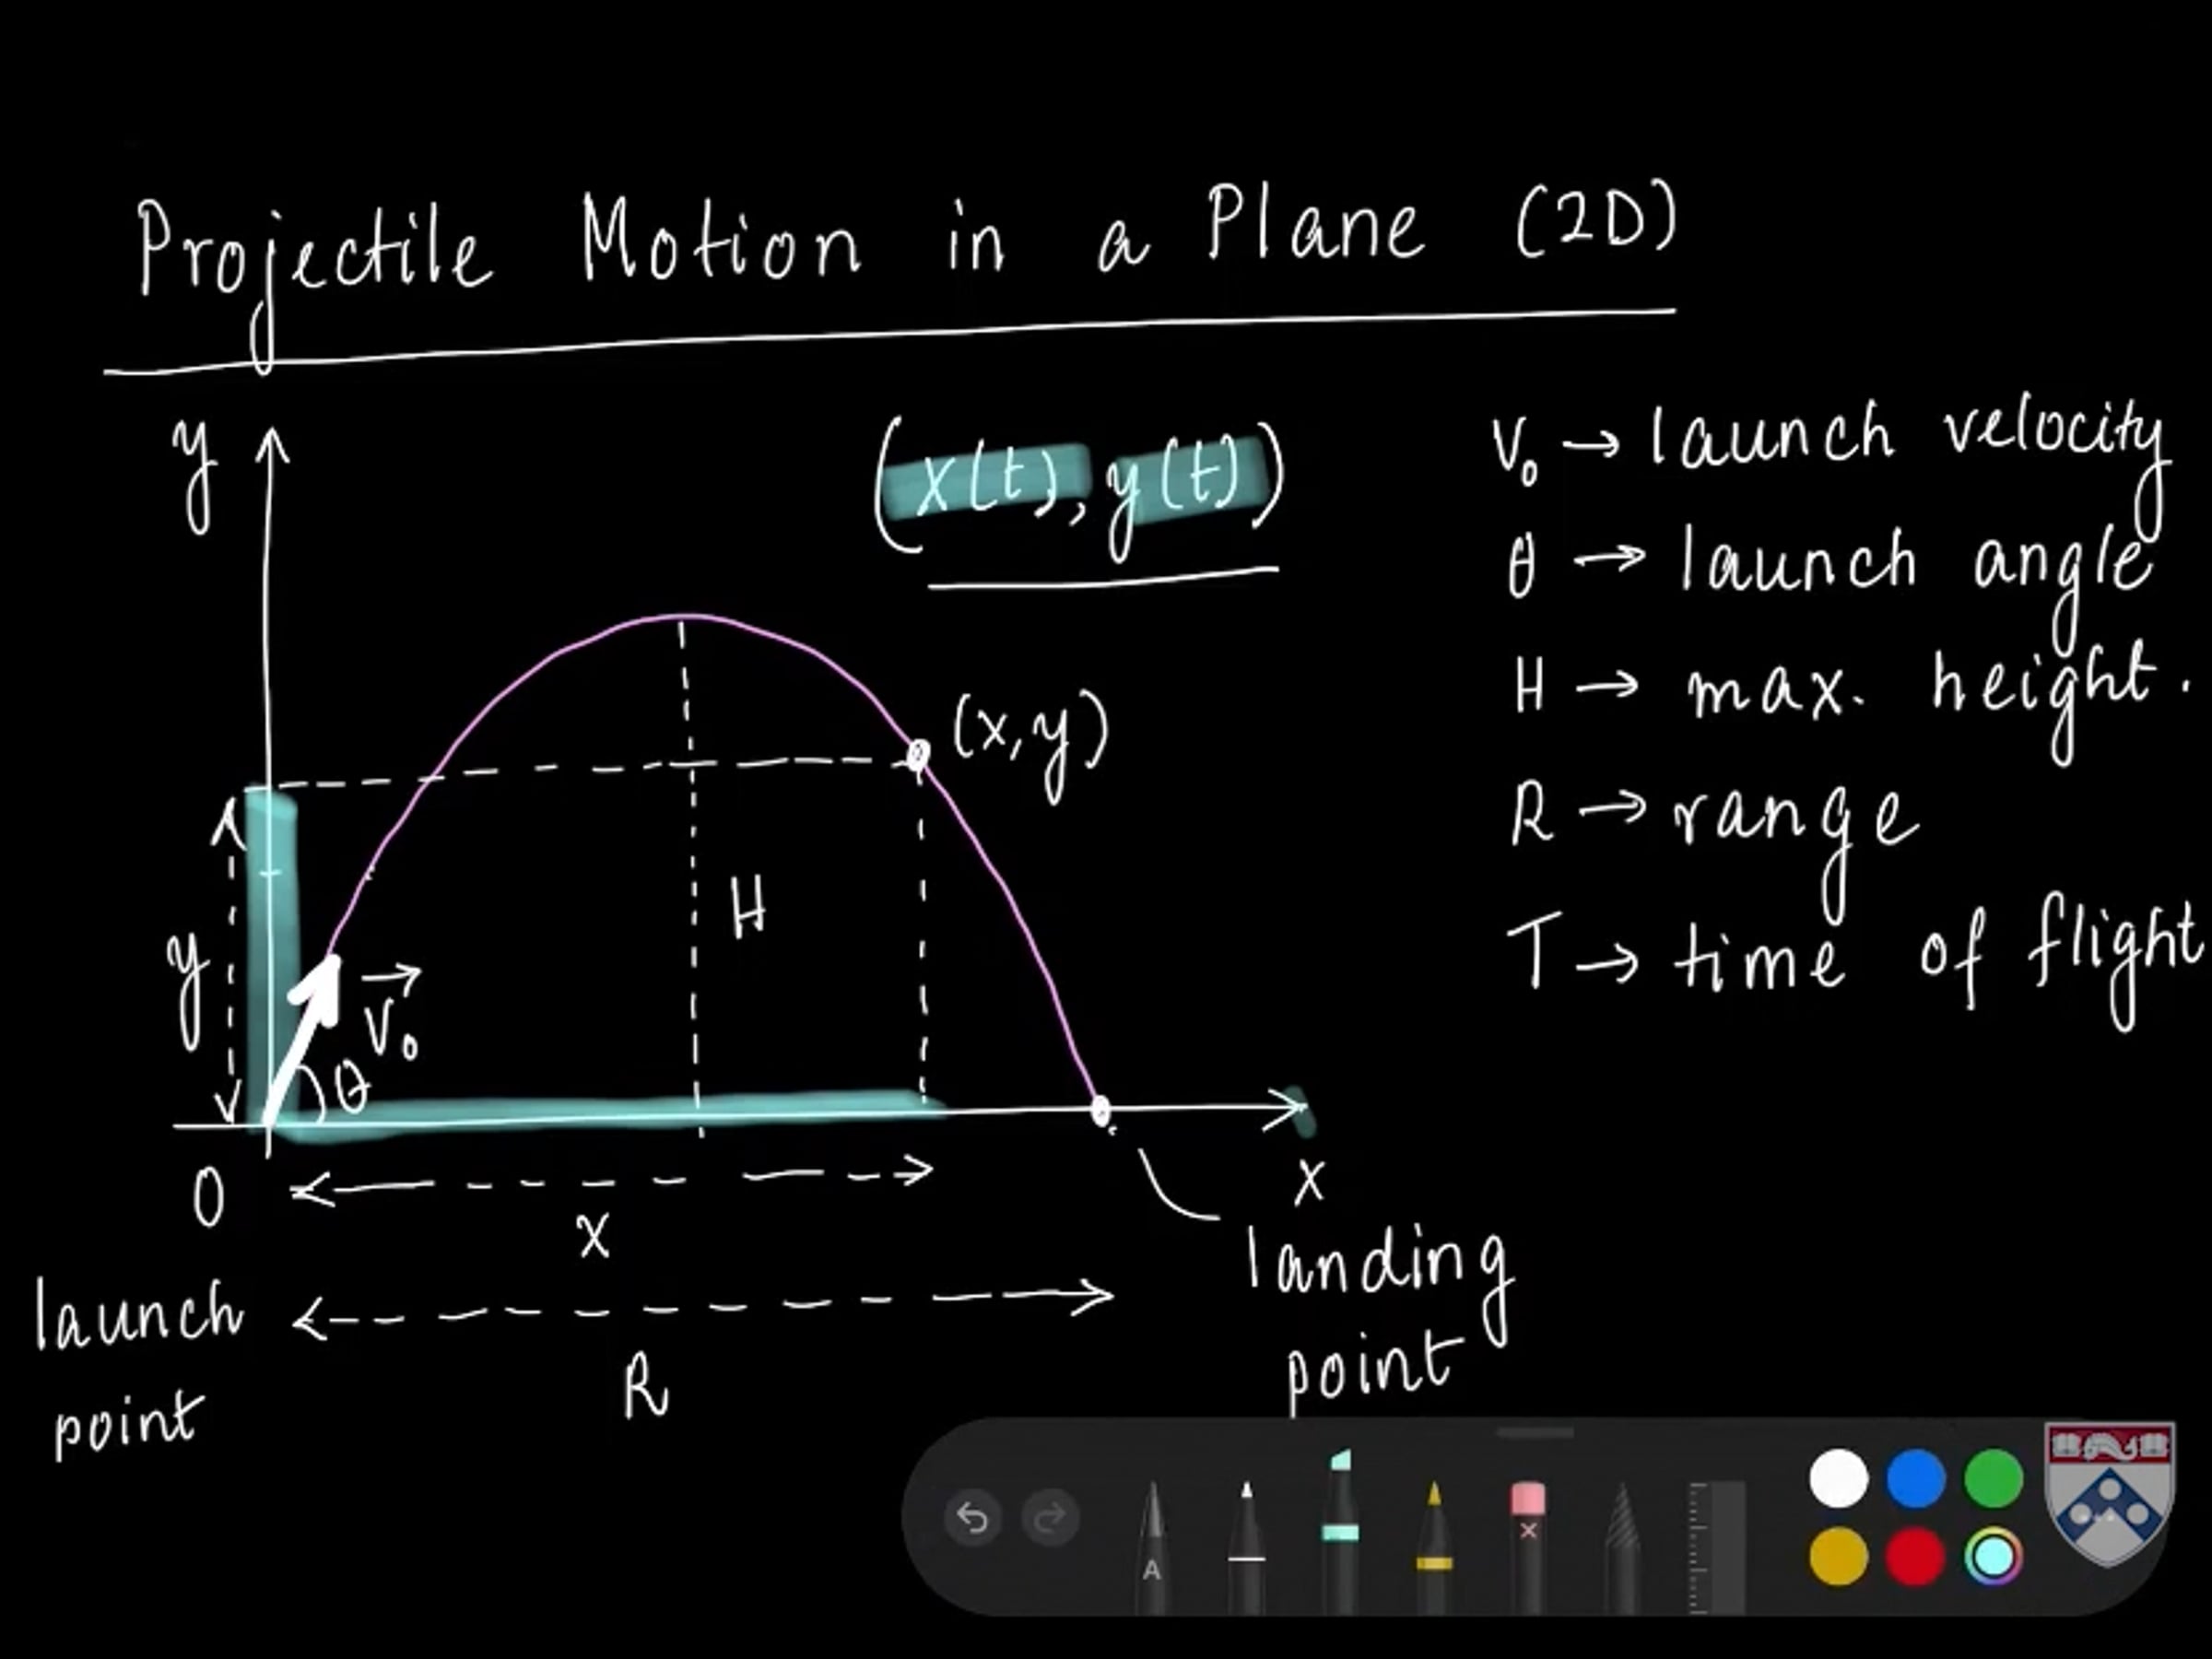 Projectile Motion in a Plane (2D)
y
(x(t), y(t))
V₀ → launch velocity
θ → launch angle
H → max. height.
R → range
T → time of flight
(x,y)
H
y
V₀
θ
O
x
x
launch point
R
landing point
A